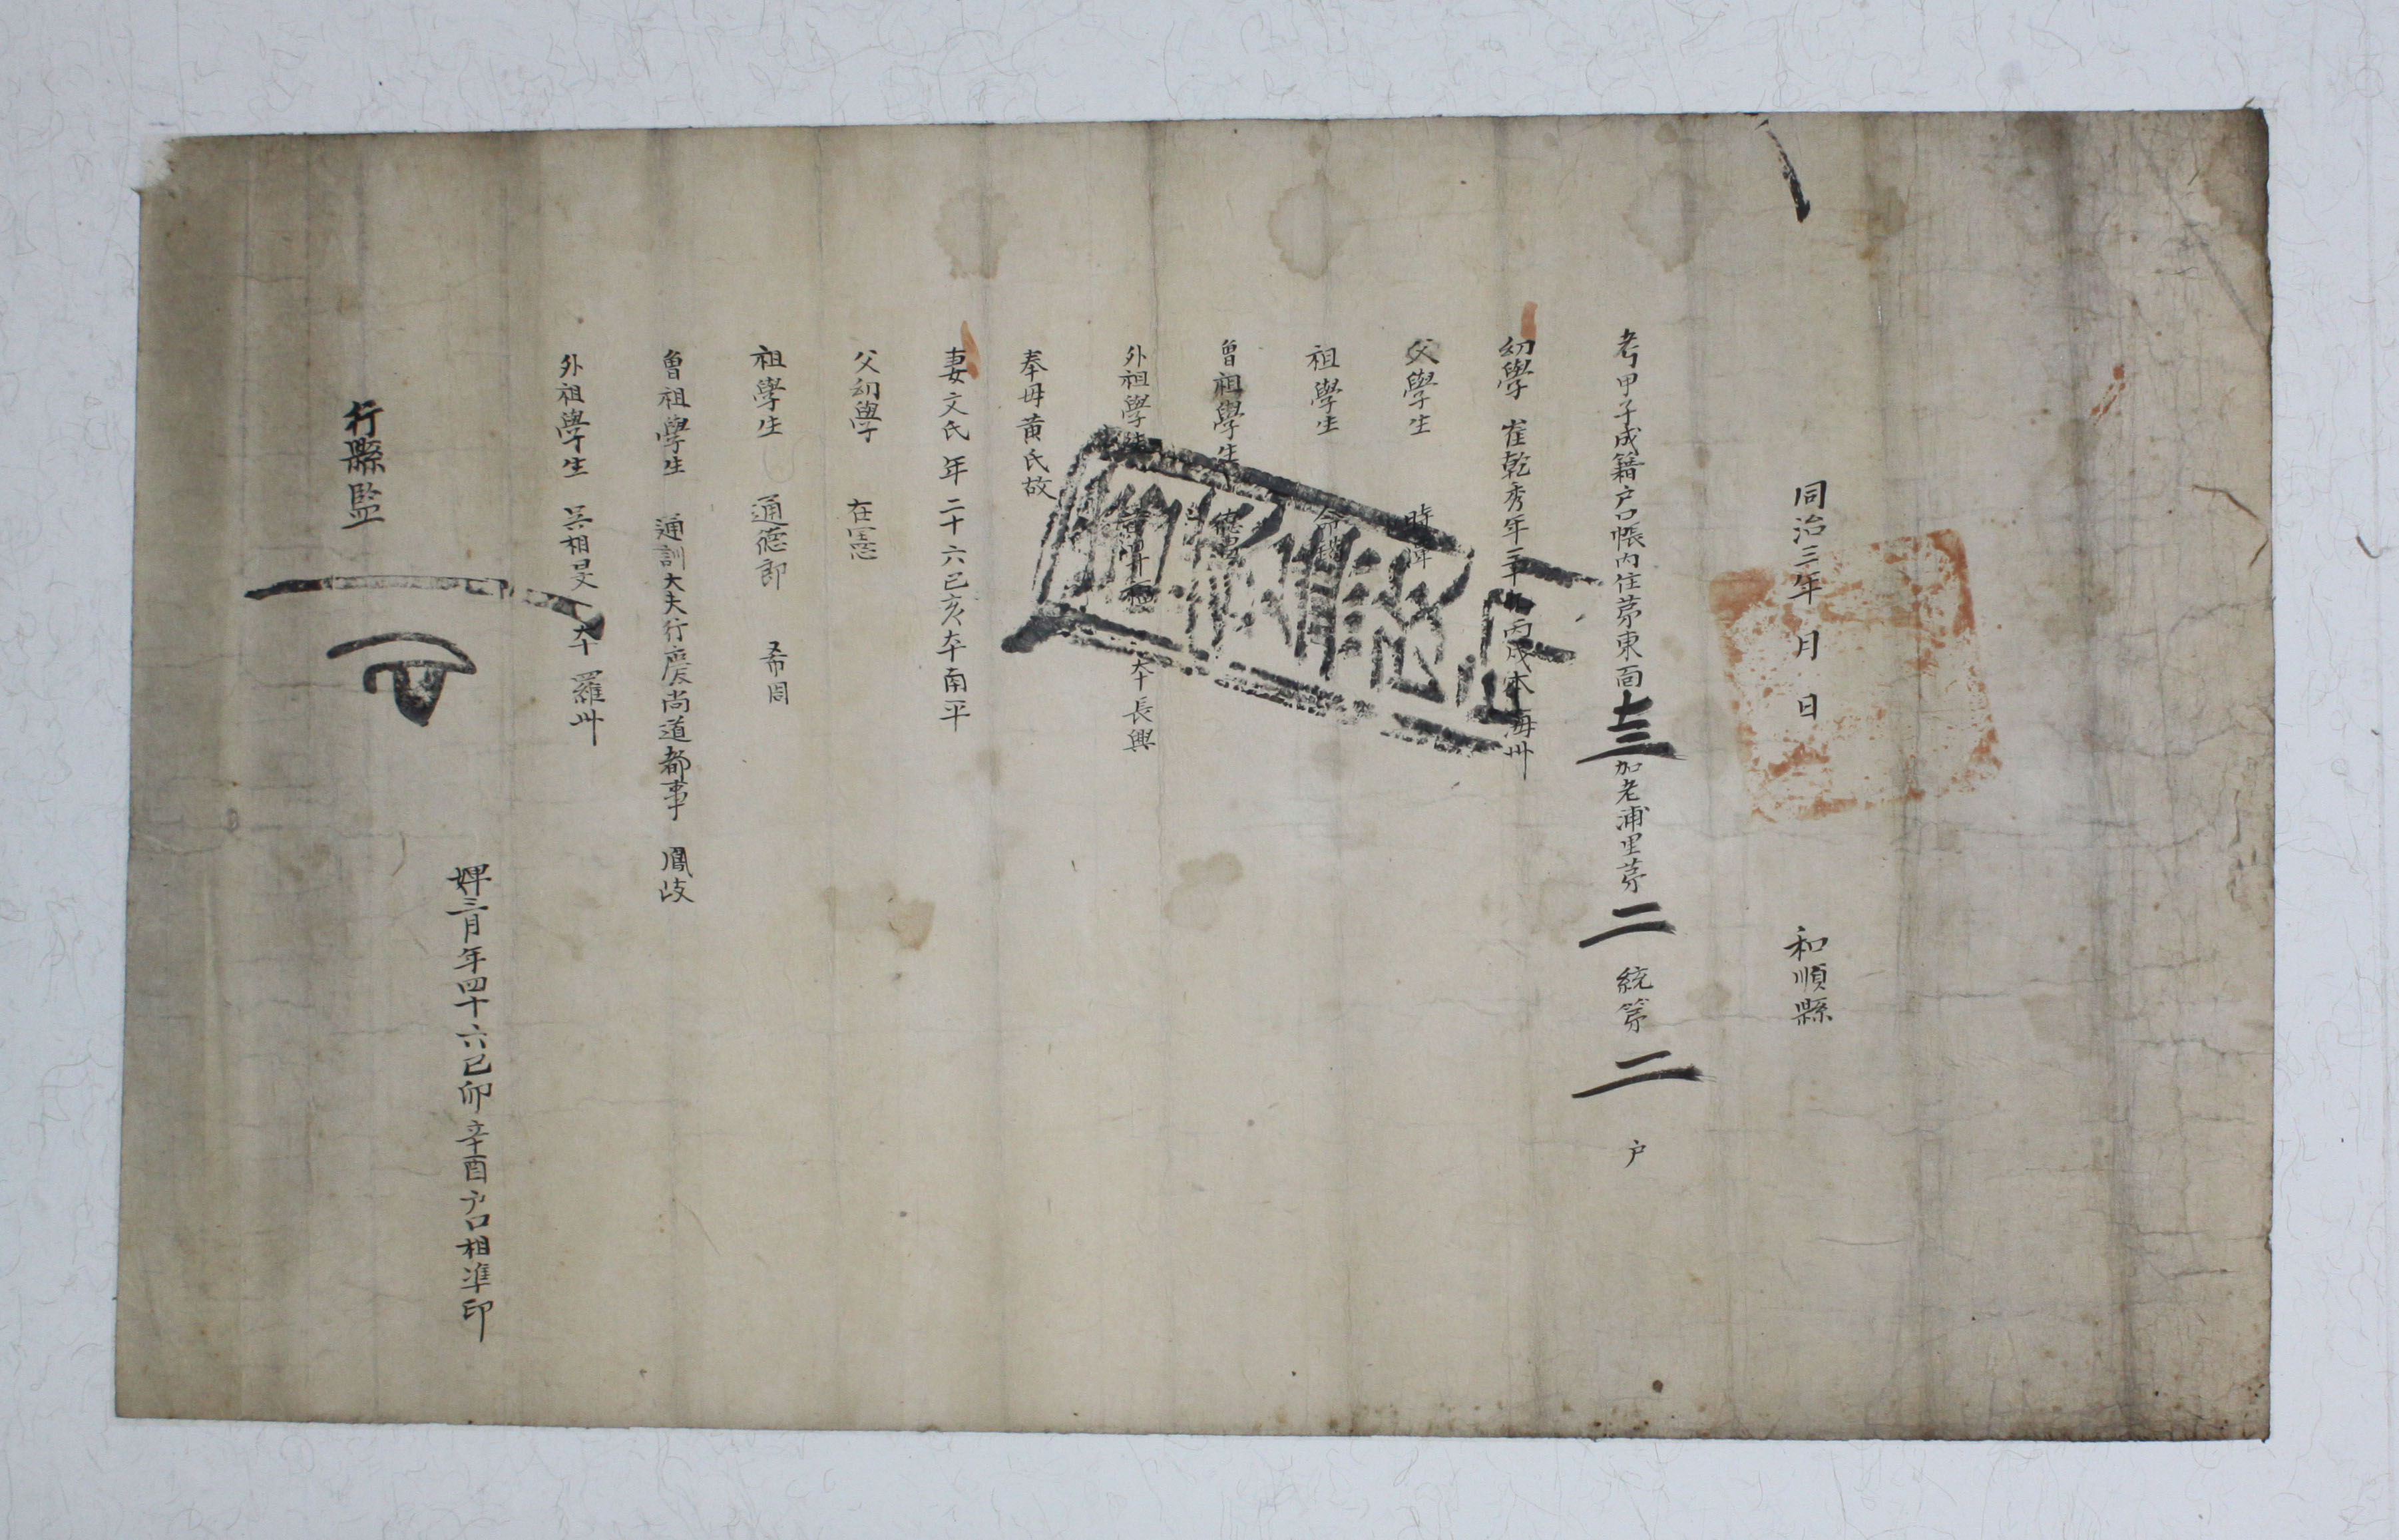 同治三年 月 日 和順縣
考甲子成籍户口帳內住苐東面十三加老浦里苐二統第二户
幼學 崔乾秀年三十九丙戌本海州
父學生 時
祖學生 命
曾祖學生 德
外祖學生 本長興
奉母黃氏故
妻文氏 年二十六己亥本南平
父幼學 在憲
祖學生 通德郎 希周
曾祖學生 通訓大夫行慶尚道都事 鳳岐
外祖學生 吳相旻 本羅州
婢三月年四十六己卯 辛酉户口相準印
行縣監